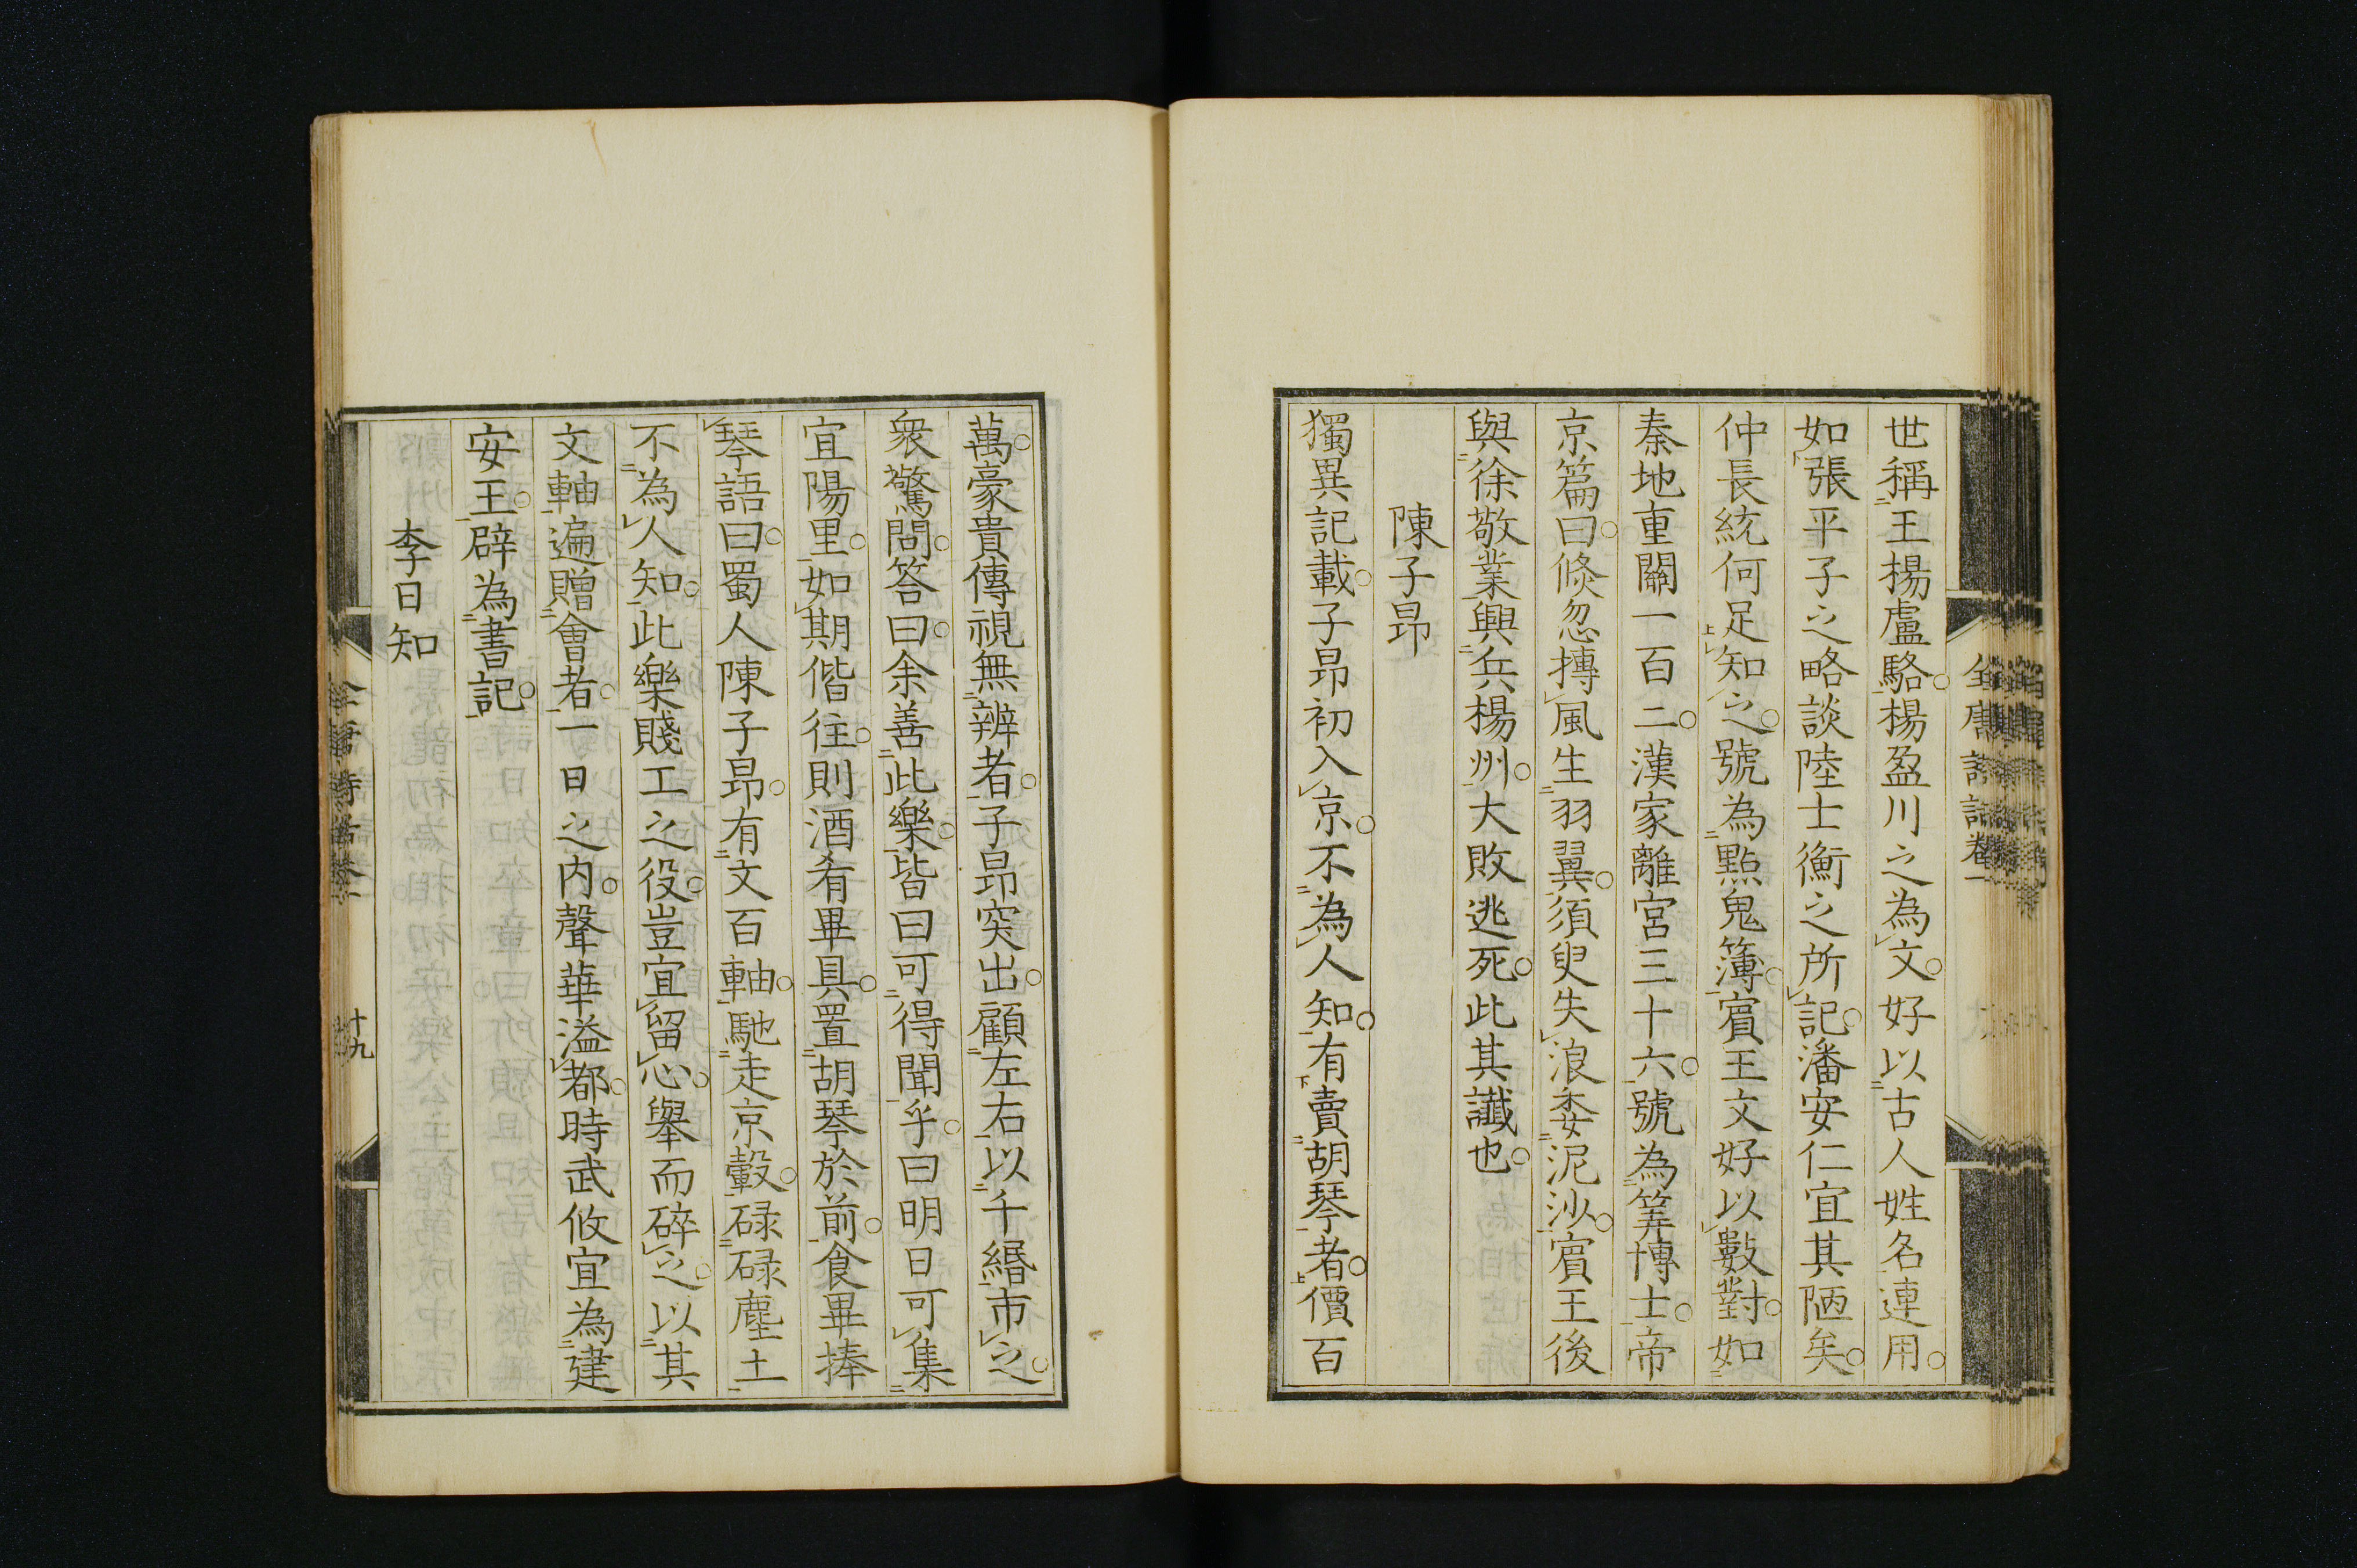 世稱王楊盧駱楊盈川之為文好以古人姓名連用
如張平子之略談陸士衡之所記潘安仁宜其陋矣
仲長統何足知之號為點鬼簿賓王文好以數對如
秦地重關一百二漢家離宮三十六號為筭博士帝
京篇曰倏忽摶風生羽翼須臾失浪委泥沙賓王後
與徐敬業興兵楊州大敗逃死此其讖也
陳子昂
獨異記載子昂初入京不為人知有賣胡琴者價百
萬豪貴傳視無辨者子昂突出顧左右以千緡市之
衆驚問答曰余善此樂皆曰可得聞乎曰明日可集
宜陽里如期偕往則酒肴畢具置胡琴於前食畢捧
琴語曰蜀人陳子昂有文百軸馳走京轂碌碌塵土
不為人知此樂賤工之役豈宜留心舉而碎之以其
文軸遍贈會者一日之内聲華溢都時武攸宜為建
安王辟為書記
李日知
全唐詩話卷一
十九